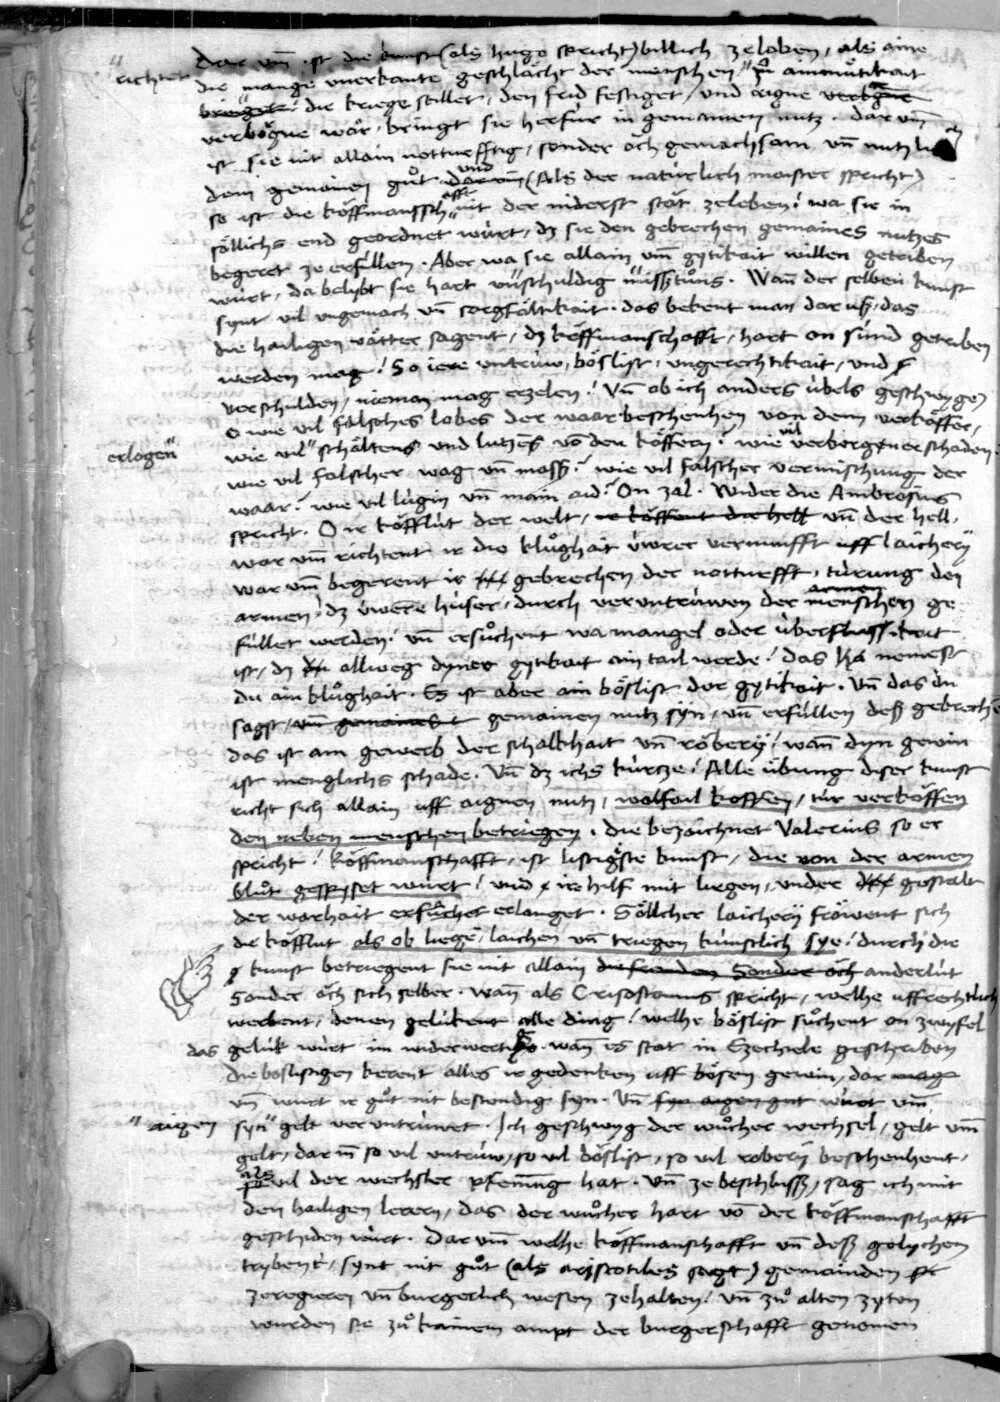 Dar um̄ ist die kunst (als hugo spricht) billich zeloben, als aine
richtet die mange unerkante geschlächt der menschen " zů ainmůtikait
bringet die kriege stillet, den frid festiget, und aigne verbgne
verbögne wår, bringt sie herfür in gemainen nutz. dår um̄
ist sie nit allain notturfftig, sonder öch gemachsam un̄ nutzlich
dem gemainen gůt dar um̄ und (Als der natürlich maister spricht)
so ist die köffmansschafft nit der niderst stät zeleben! wa sie in
söllichs end geordnet würt, dz sie den gebrechen gemaines nutzes
begeret ze erfüllen. Aber wa sie allain um̄ gytikait willen getriben
würt, da belybt sie hart unschuldig misstůns. Wan̄ der selben kunst
synt vil ungemach un̄ sorgfältikait. das bekent man dar uß, das
die hailigen vätter sagent, dz köffmanschafft, hart on sünd getriben
werden mag! So iere untrüw, böslist, ungerechtikait, und
verschulden, nieman mag erzelen! Un̄ ob ich anders übels geschwyge
O wie vil falsches lobes der waar beschenhen von dem verköffer,
erlogen" wie vil" schältens und lutzes vō den köffern! wie vil verborgner schaden.
wie vil falscher wag un̄ mass! wie vil falscher vermischung der
waar! wie vil lügin un̄ main aid! On zal. Wider die Ambrosius
spricht. O ir köfflüt der welt, ir köffent die hell un̄ der hell.
war um̄ richtent ir die klůghait üwrer vernunfft uff laichery
war um̄ begerent ir gebrechen der notturfft, türung den
armen, dz üwere hüser, durch veruntrüwen der menschen armen ge
füllet werden! un̄ ersůchent wa mangel oder überflüssikait
ist, dz allweg dyner gytikait ain tail werde! das nemest
du ain klůghait. Es ist aber ain böslist der gytikait. Un̄ das du
sagst, un̄ gemaines gemainen nutz syn, un̄ erfüllen deß gebrechen
das ist am gewerb der schalkhait un̄ röbery, wan̄ dyn gewin
ist menglichs schade. Un̄ dz ichs kürtze! Alle übung diser kunst
richt sich allain uff aignen nutz, wolfail koffen, tür verköffen
den neben menschen betriegen. die bezaichnet Valerius so er
spricht! köffmanschafft, ist listigste kunst, die von der armen
blůt gespyset würt! und ire hilf mit liegen, under gestalt
der warhait erfuchet erlanget. Söllicher laichery fröwent sich
die köfflüt als ob liege, laichen un̄ triegen künstlich sye! durch die
kunst betriegent sie nit allain die frenden Sonder öch ander lüt
Sonder öch sich selber. wan̄ als Crisostomus spricht, welhe uffrechtlich
werbent, denen gelükent alle ding! welhe böslist sůchent on zwyfel
das gelük würt im widerwertig. wan̄ es stat in Ezechiele geschriben
die boslistigen kerent alles ir gedenken uff bösen gewin, dar
un̄ wurt ir gůt nit bestendig syn. Un̄ syn aigen gut würt um̄
" aigen syn" gelt veruntrüwet. Ich geschwyg der wůcher wechsel, gelt um̄
gelt, dar in̄ so vil untrüw, so vil böslist, so vil robery beschenhent,
als vil der wechsler pfennīg hat. Un̄ ze beschluss, sag ich mit
den hailigen lerern, das der wůcher hart vō der köffmanschafft
geschiden würt. Dar um̄ welhe köffmanschafft un̄ deß gelychen
trybent, synt nit gůt (als aristotiles sagt) gemainden
ze regieren un̄ burgerlich wesen zehalten! Un̄ zů alten zyten
wurden sie zů kainem ampt der burgerschafft genomen